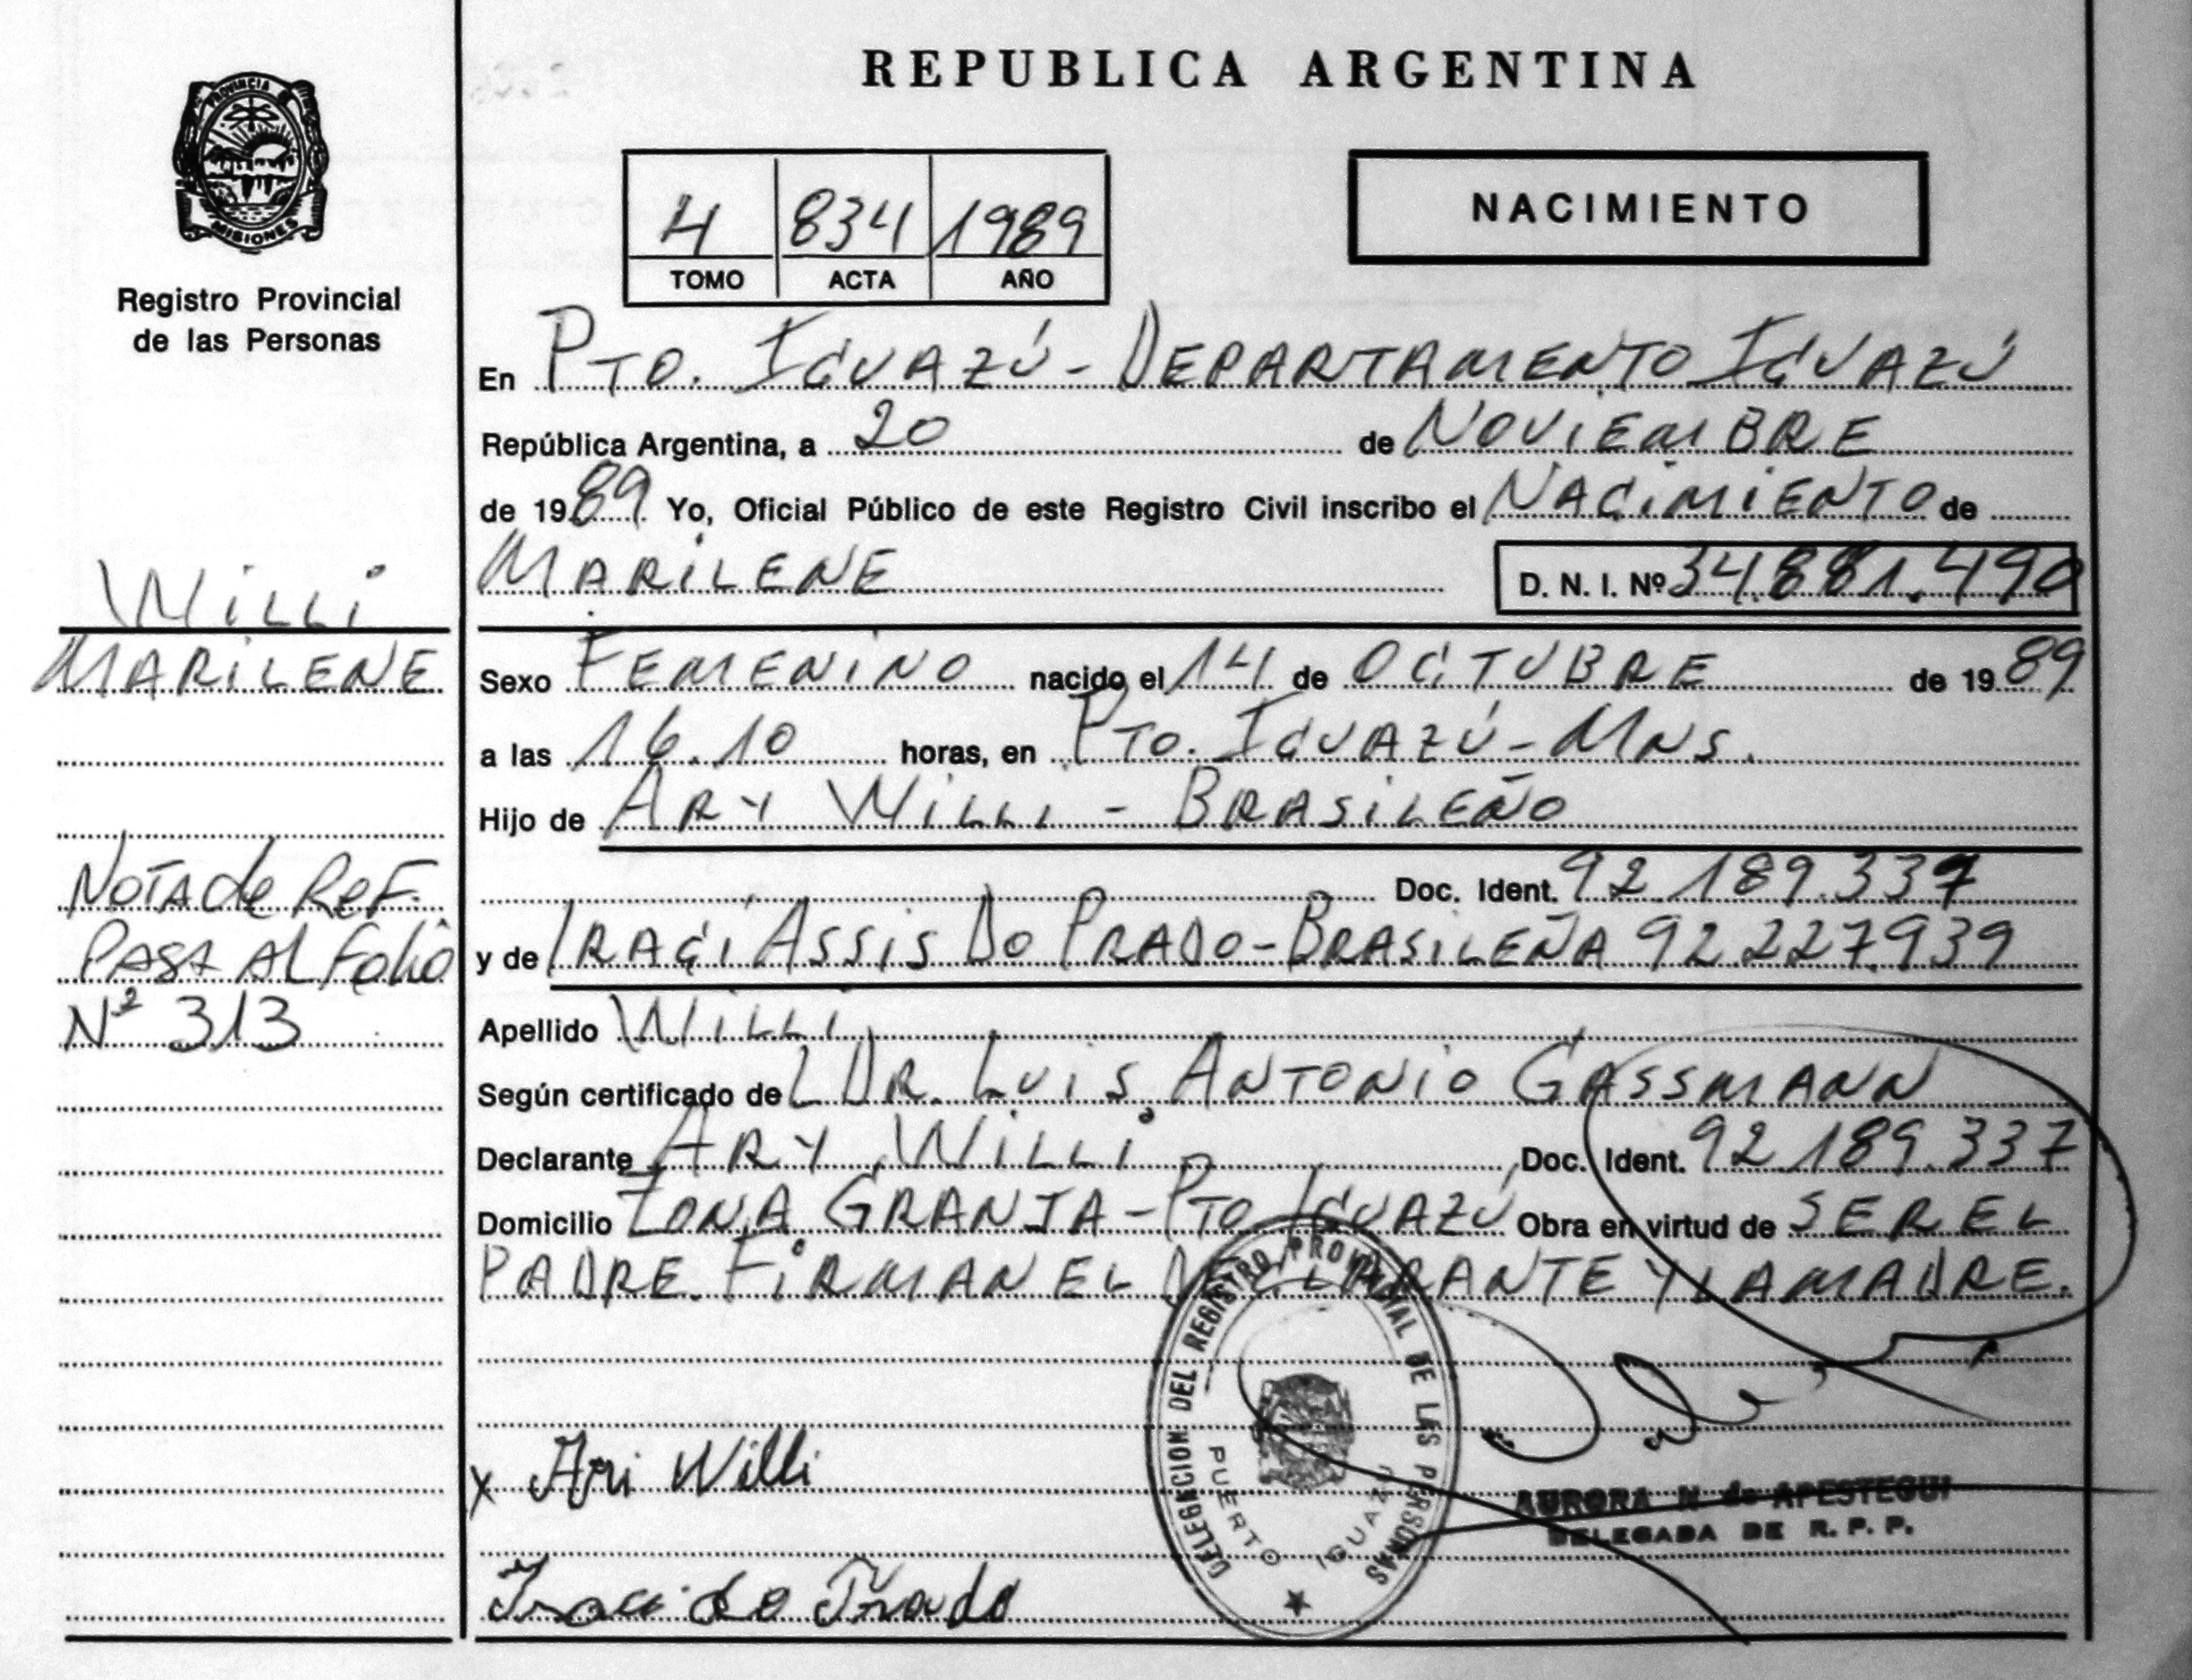 REPUBLICA ARGENTINA
PROVINCIA DE
MISIONES
Registro Provincial
de las Personas
4 834 1989
TOMO ACTA AÑO
NACIMIENTO
En PTO. IGUAZÚ - DEPARTAMENTO IGUAZÚ
República Argentina, a 20 de NOVIEMBRE
de 1989 Yo, Oficial Público de este Registro Civil inscribo el NACIMIENTO de
MARILENE D. N. I. Nº 34.881.490
WILLI
MARILENE
Sexo FEMENINO nacido el 14 de OCTUBRE de 1989
a las 16.10 horas, en PTO. IGUAZÚ - MNS.
Hijo de ARY WILLI - BRASILEÑO
Doc. Ident. 92.189.337
y de IRACI ASSIS DO PRADO - BRASILEÑA 92.227.939
NOTA de REF.
PASA AL Folio
Nº 313
Apellido WILLI
Según certificado de L DR. LUIS ANTONIO GASSMANN
Declarante ARY WILLI Doc. Ident. 92.189.337
Domicilio ZONA GRANJA - PTO IGUAZÚ Obra en virtud de SER EL
PADRE. FIRMAN EL DECLARANTE Y LA MADRE.
x Ari Willi
Iraci do Prado
DELEGACION DEL REGISTRO PROVINCIAL DE LAS PERSONAS
PUERTO IGUAZU
AURORA N de APESTEGUI
DELEGADA DE R. P. P.